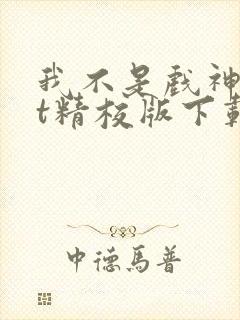 我不是戏神
t精校版下载
中德馬普